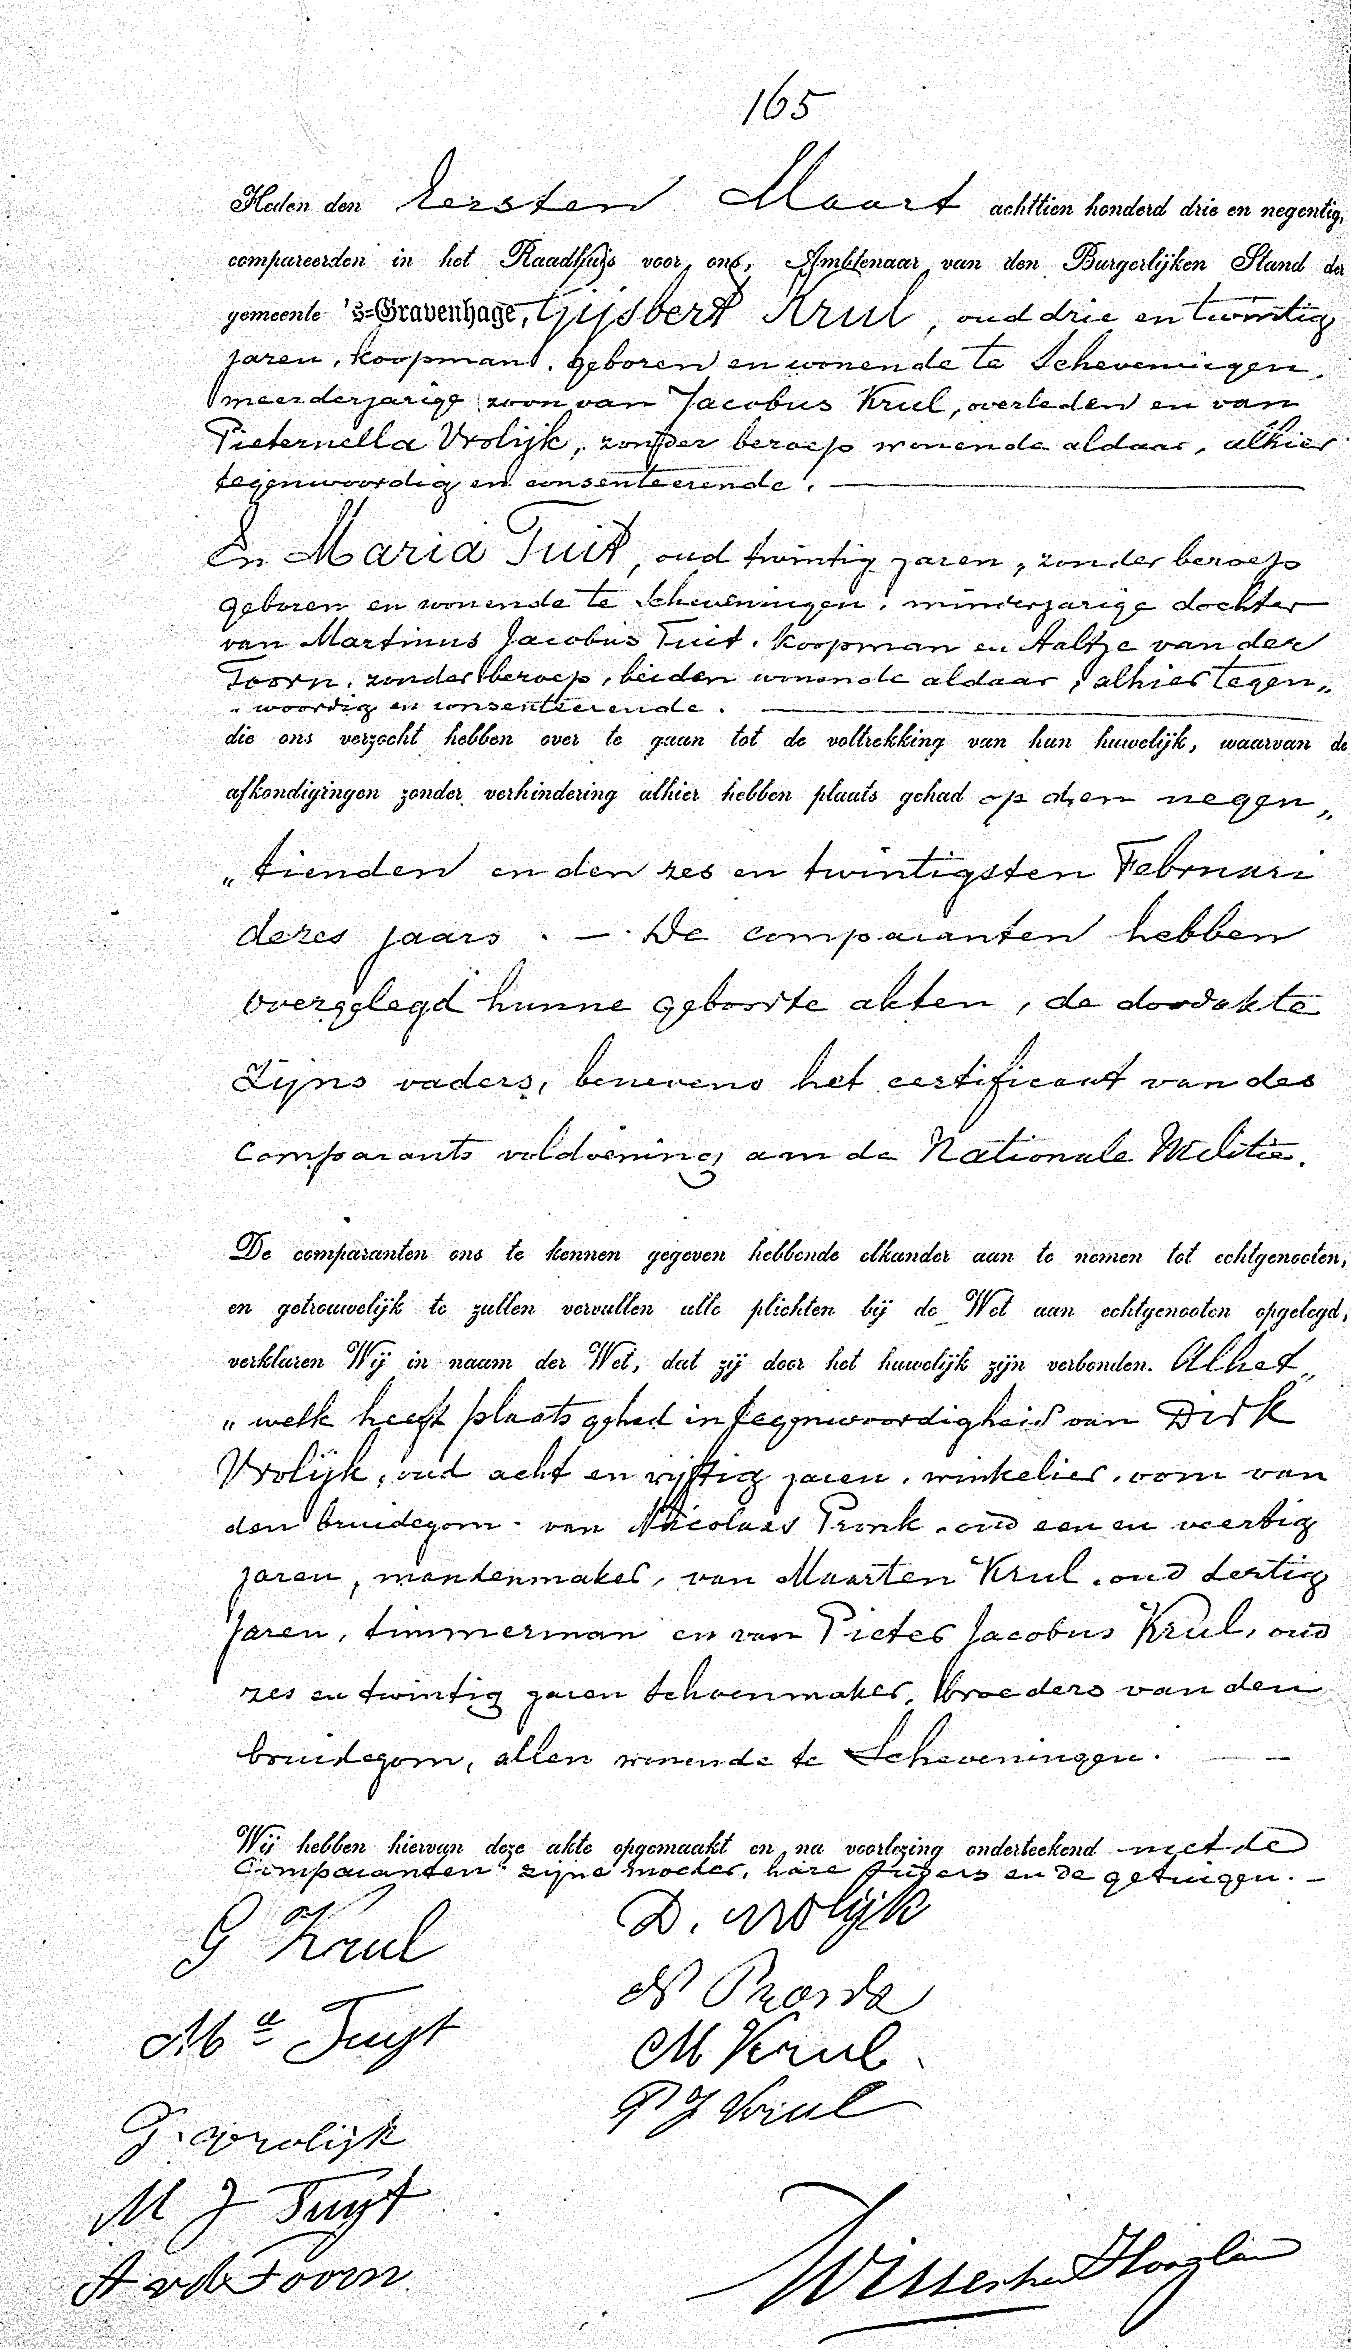 165
Heden den Eersten Maart achttien honderd drie en negentig,
compareerden in het Raadhuis voor ons, Ambtenaar van den Burgerlijken Stand der
gemeente 's=Gravenhage, Gijsbert Krul, oud drie en twintig
jaren, koopman, geboren en wonende te Scheveningen,
meerderjarige zoon van Jacobus Krul, overleden en van
Pieternella Vrolijk, zonder beroep wonende aldaar, alhier
tegenwoordig en consenteerende. —
En Maria Tuit, oud twintig jaren, zonder beroep
geboren en wonende te Scheveningen, minderjarige dochter
van Martinus Jacobus Tuit, koopman en Aaltje van der
Toorn, zonder beroep, beiden wonende aldaar, alhier tegen„
„woordig en consenteerende. —
die ons verzocht hebben over te gaan tot de voltrekking van hun huwelijk, waarvan de
afkondigingen zonder verhindering alhier hebben plaats gehad op den negen„
„tienden en den zes en twintigsten Februari
dezes jaars. — De comparanten hebben
overgelegd hunne geboorte akten, de doodakte
Zijns vaders, benevens het certificaat van des
comparants voldoening aan de Nationale Militie.
De comparanten ons te kennen gegeven hebbende elkander aan te nemen tot echtgenooten,
en getrouwelijk te zullen vervullen alle plichten bij de Wet aan echtgenooten opgelegd,
verklaren Wij in naam der Wet, dat zij door het huwelijk zijn verbonden. Alhet„
„welk heeft plaats gehad in tegenwoordigheid van Dirk
Vrolijk, oud acht en vijftig jaren, winkelier, oom van
den bruidegom, van Nicolaas Pronk, oud een en veertig
jaren, mandenmaker, van Maarten Krul, oud dertig
Jaren, timmerman en van Pieter Jacobus Krul, oud
zes en twintig jaren schoenmaker, broeders van den
bruidegom, allen wonende te Scheveningen. —
Wij hebben hiervan deze akte opgemaakt en na voorlezing onderteekend met de
Comparanten zijne moeder, hare ouders en de getuigen. —
G Krul
D. Vrolijk
Ma Tuyt
N Pronk
M Krul
P J Krul
P. Vrolijk
M J Tuyt
A vd Toorn